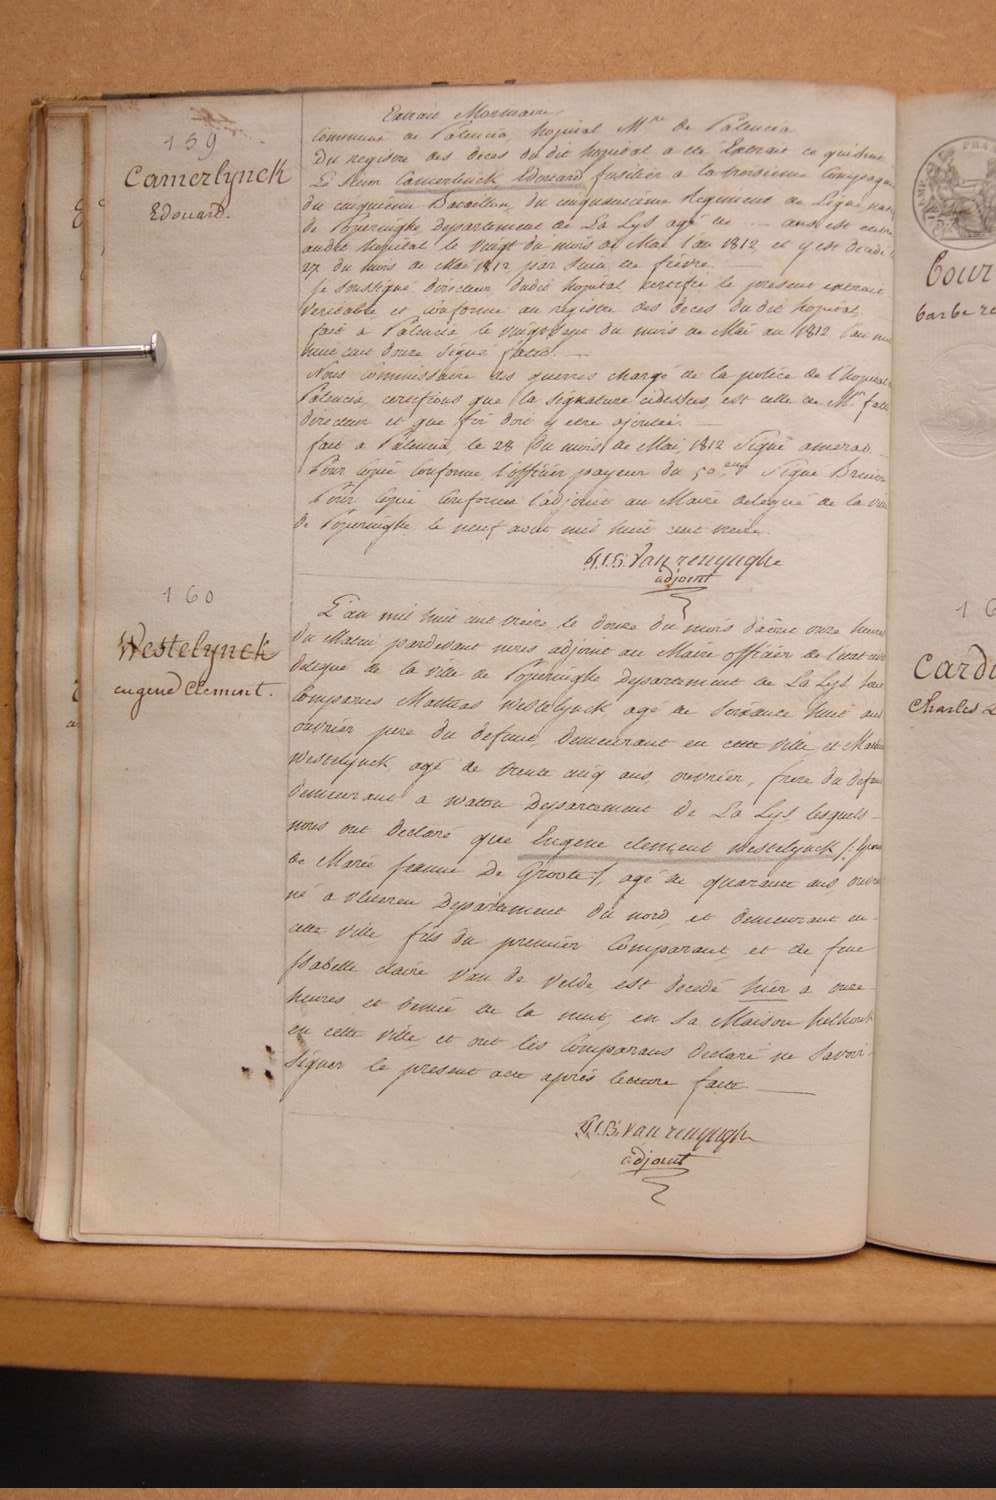 159
Camerlynck
Edouard.
Extrait Mortuaire
Commune de Palencia, hopital M.re de Palencia
Du registre des deces du dit hopital a été Extrait ce qui suit
Le sieur Camerlynck Edouard fusilier a la troisieme Compagnie
du cinquième Bataillon, du cinquantieme Regiment de Ligne natif
de Poperinghe Departement de La Lys agé de --- ans est entré
audit hopital le vingt du mois de Mai l'an 1812 et y est décédé le
27 du mois de Mai 1812 par suite de fièvre.
Je soussigné directeur dudit hopital certifie le present extrait
veritable et conforme au registre des deces du dit hopital,
fait a Palencia le vingt sept du mois de Mai an 1812 l'an mil
huit cent douze signé
Nous Commissaire des guerres chargé de la police de l'hopital
Palencia, certifions que la signature cidessus, est celle de Mr
directeur et que foi doit y etre ajoutée.
fait a Palencia, le 28 du mois de Mai 1812 Signé
Pour copie conforme l'officier payeur du 50.eme Signé
Pour copie conforme l'adjoint au Maire delegué de la ville
de Poperinghe le neuf aout mil huit cent treize.
P.J.B. Van renynghe
adjoint
160
Westelynck
eugene Clement.
L'an mil huit cent treize le douze du mois d'août onze heures
du Matin pardevant nous adjoint au Maire officier de l'etat civil
delegué de la ville de Poperinghe Departement de La Lys sont
Comparus Mathias Westelynck agé de soixante huit ans
ouvrier pere du defunt, demeurant en cette ville et
Westelynck agé de trente cinq ans, ouvrier, frere du defunt
demeurant a Watou Departement de La Lys lesquels
nous ont declaré que Eugene clement westelynck /: Epoux
de Marie jeanne De Groote :/, agé de quarante ans ouvrier
né a Departement du nord, et demeurant en
cette ville fils du premier Comparant, et de feue
Isabelle claire Van de Velde, est decedé hier a onze
heures et demie de la nuit, en sa Maison
en cette ville, et ont les Comparans declaré ne savoir
signer le present acte après lecture faite
P.J.B. van renynghe
adjoint
barbe
16
Cardi
Charles L